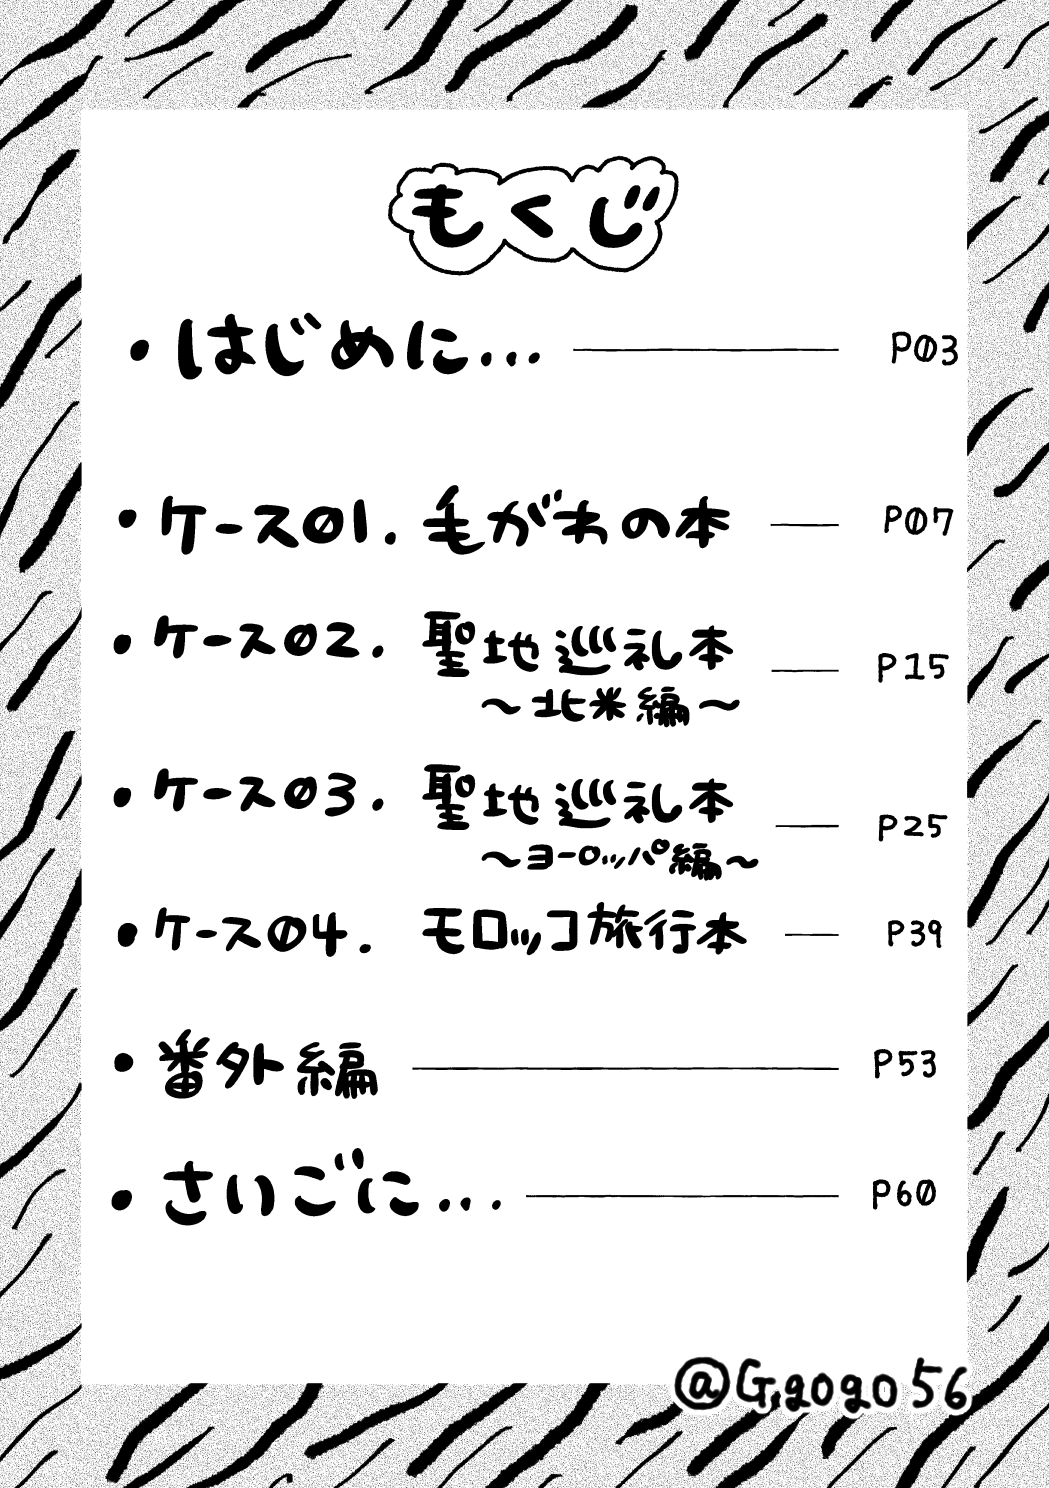 もくじ
・はじめに... P03
・ケース01. 毛がわの本 P07
・ケース02. 聖地巡礼本 P15
～北米編～
・ケース03. 聖地巡礼本 P25
～ヨーロッパ編～
・ケース04. モロッコ旅行本 P39
・番外編 P53
・さいごに... P60
@Gogogo56